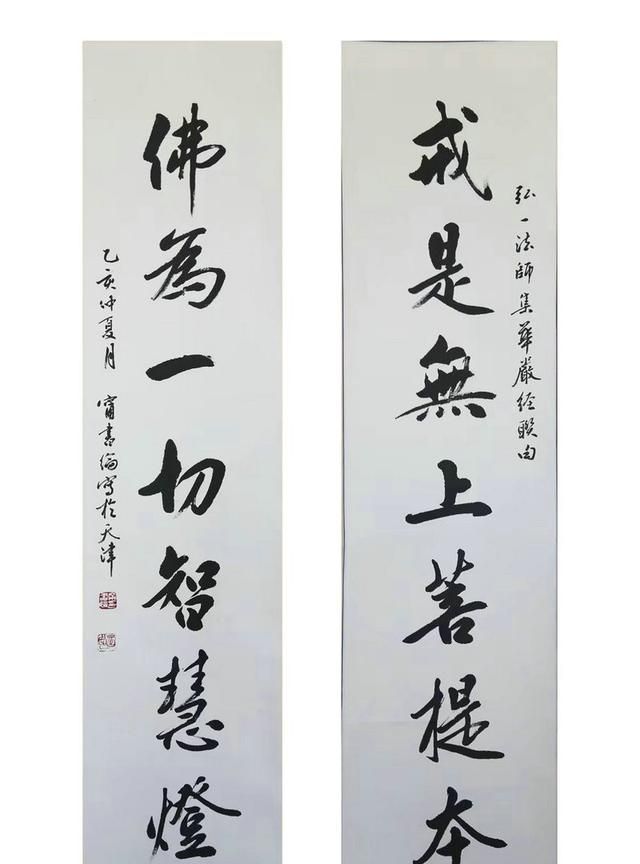 弘一法師集華嚴經聯句
戒是無上菩提本
佛為一切智慧燈
乙亥仲夏月
甯書綸寫於天津